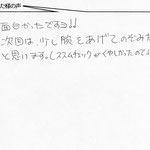 た様の声
面白かったですヨ!!
次回は少し腕をあげてのぞみた
と思います。(スズムチェックがくやしかったので